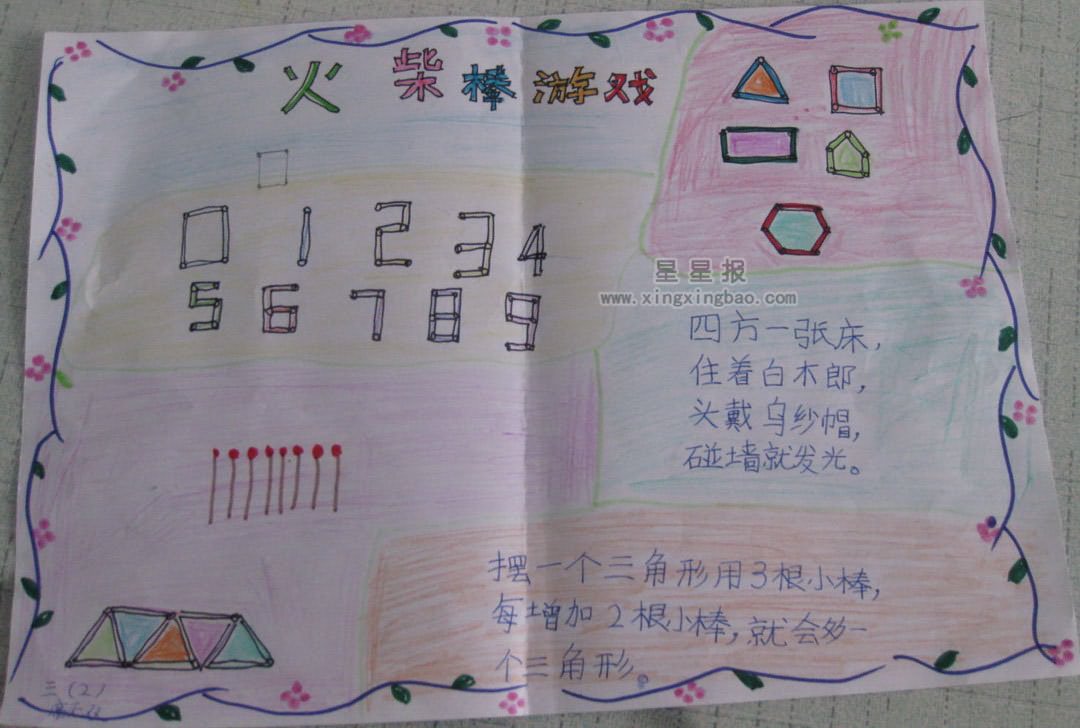 火柴棒游戏
0 1 2 3 4
5 6 7 8 9
星星报
www.xingxingbao.com
四方一张床，
住着白木郎，
头戴乌纱帽，
碰墙就发光。
摆一个三角形用3根小棒，
每增加2根小棒，就会多一
个三角形。
三（2）